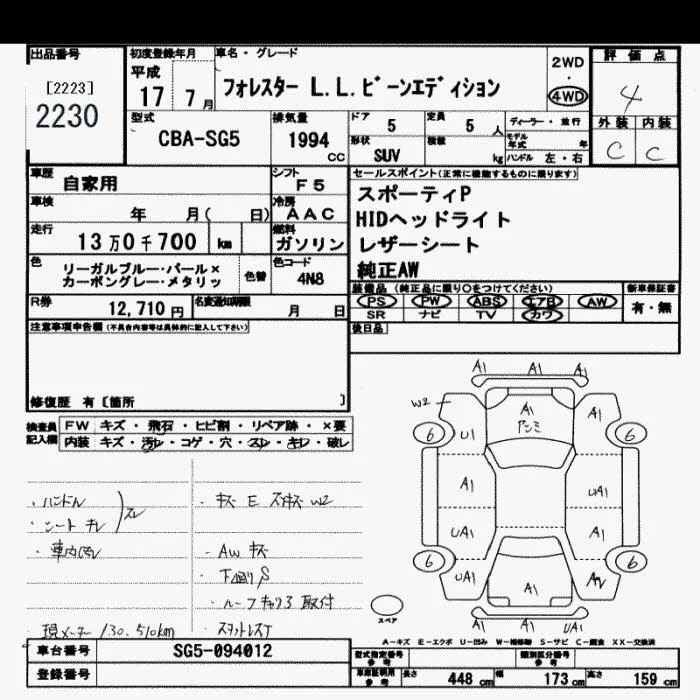 出品番号
[2223]
2230
初度登録年月
平成
17 7月
車名・グレード
フォレスター L.L.ビーンエディション
2WD
・
4WD
評価点
4
外装 内装
C C
型式
CBA-SG5
排気量
1994
CC
ドア
5
定員
5 人
形状
SUV
積載
kg
ディーラー・並行
モデル
年式 年
ハンドル 左・右
車歴
自家用
シフト
F5
車検
年 月( 日)
冷房
AAC
走行
13万0千700 km
燃料
ガソリン
色
リーガルブルー・パール×
カーボングレー・メタリッ
色替
色コード
4N8
R券
12,710 円
名変通知期限
月 日
セールスポイント(正常に機能するものに限ります)
スポーティP
HIDヘッドライト
レザーシート
純正AW
装備品 (純正品に限り○をつけてください)
PS PW ABS エアB AW
SR ナビ TV カワ
新車保証書
有・無
後日品
注意事項申告欄(不具合内容等は具体的に記入して下さい)
修復歴 有〔箇所 〕
検査員
記入欄
FW キズ・飛石・ヒビ割・リペア跡・×要
内装 キズ・汚レ・コゲ・穴・スレ・キレ・破レ
・ハンドル
・シート キレ
スレ
・車内汚レ
現メーター 130,510km
・キズ E スリキズ W2
・AW キズ
・下廻りS
・ルーフキャリア取付
・スタットレスT
A1 A1 A1
W2
A1
A1
U1
6 6
A1
UA1
UA1
A1
6 6
UA1
A1
スペア
A1 A1 UA1
A-キズ E-エクボ U-凹み W-補修跡 S-サビ C-腐食 XX-交換済
車台番号
SG5-094012
登録番号
型式指定番号
参考
類別区分番号
参考
車庫証明用
参考
長さ 448 cm
幅 173 cm
高さ 159 cm